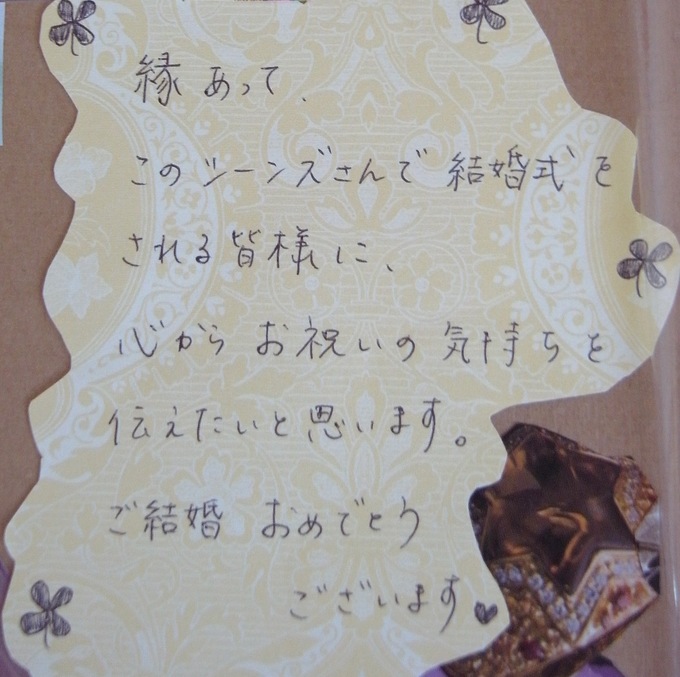 縁あって、
このシーンズさんで結婚式を
される皆様に、
心からお祝いの気持ちを
伝えたいと思います。
ご結婚 おめでとう
ございます♥